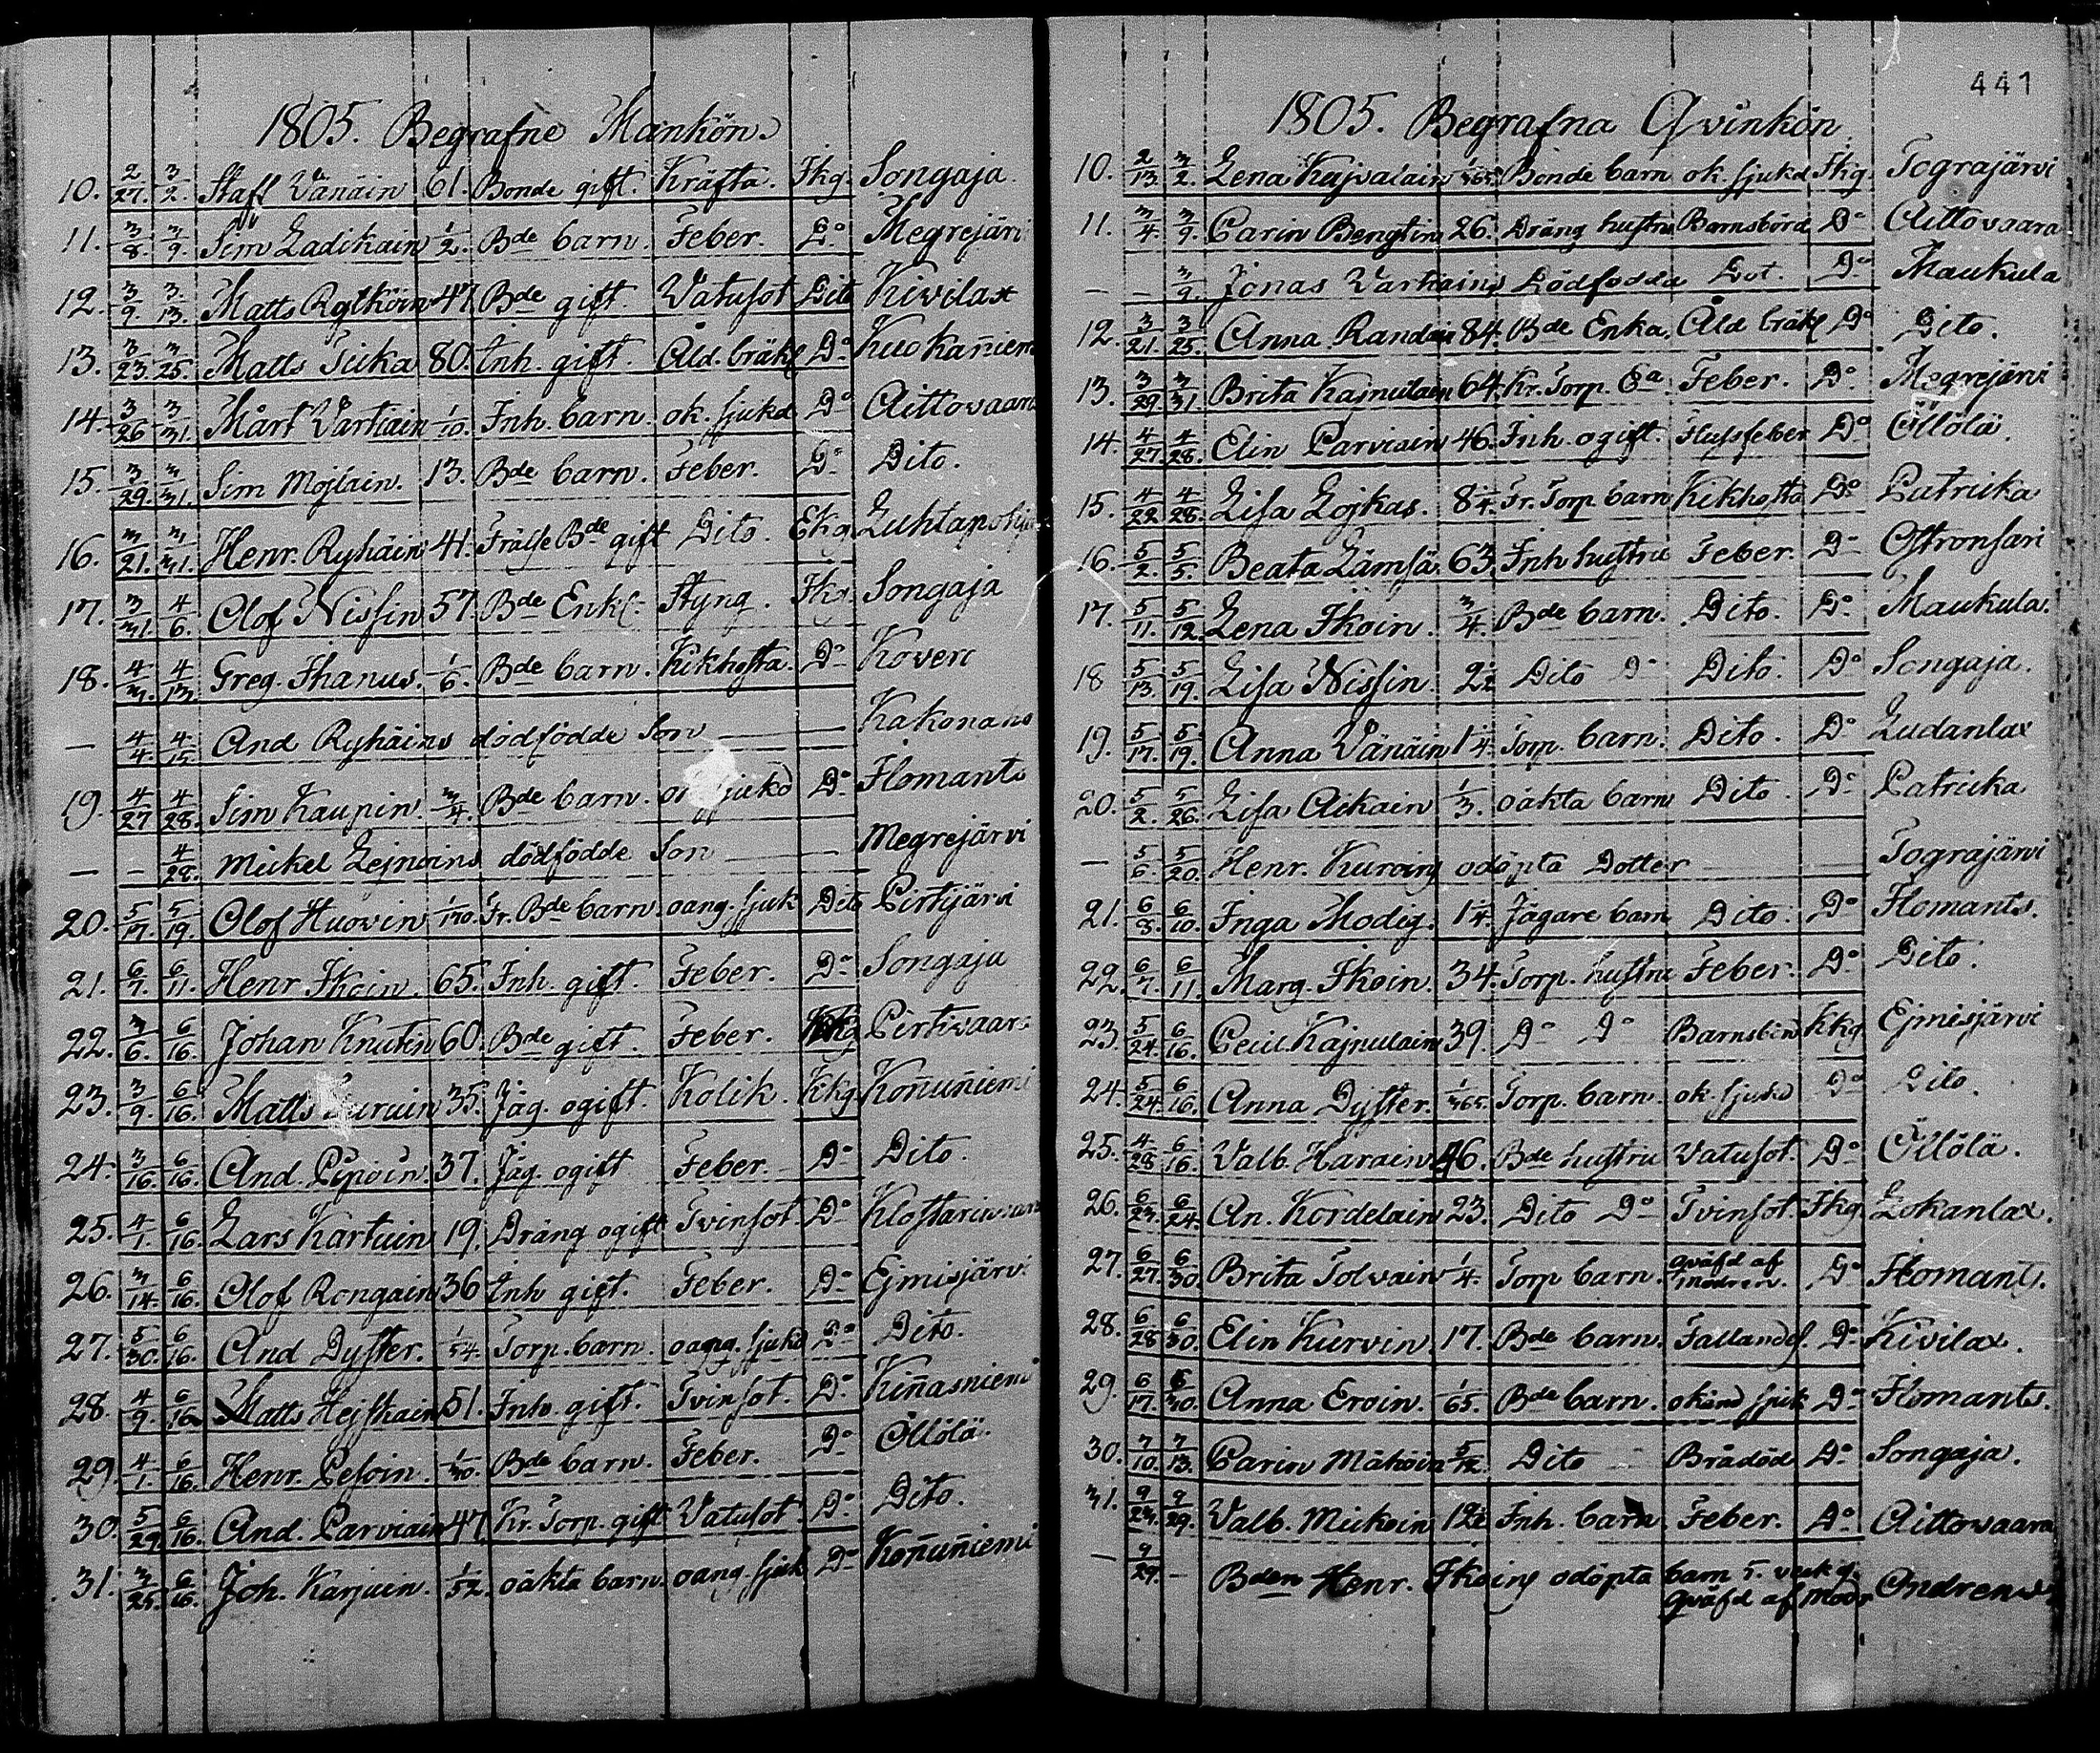 1805. Begrafne Mankön.
10. 2/27. 3/2. Staff Vänäin 61. Bonde gift. Kräfta. Fkg. Songaja.
11. 3/8. 3/9. Sim Ladikain 1/2. Bde barn. Feber. Do Megrejärvi
12. 3/9. 3/13. Matts Rytköin 47. Bde gift. Vatusot Dito Kivilax
13. 3/23. 3/25. Matts Tiika 80. Inh. gift. Åld. bräkl Do Kuokañiem
14. 3/26 3/31. Mårt Vartiain 1/10. Inh. barn. ok. sjukd Do Aittovaara
15. 3/29. 3/31. Sim Mojlain. 13. Bde barn. Feber. Do Dito.
16. 3/21. 3/31. Henr. Ryhäin 41. Frälse Bde gift Dito. Ekg Luhtapohja
17. 3/31. 4/6. Olof Nissin 57. Bde Enkl. Styng. Fkg. Songaja
18. 4/3. 4/13. Greg. Ihanus. 1/6. Bde barn. Kikhosta. Do Kovero
— 4/4. 4/15. And Ryhäins dödfödde Son — Kakonaho
19. 4/27 4/28. Sim Kaupin. 3/4. Bde barn. sjukd Do Ilomants
— — 4/28. Mickel Lejnoins dödfödde Son — Megrejärvi
20. 5/17. 5/19. Olof Huovin 1/170. Fr. Bde barn. oang. sjuk Dito Pirtijärvi
21. 6/7. 6/11. Henr Ikoin. 65. Inh. gift. Feber. Do Songaja
22. 3/6. 6/16. Johan Knutin 60. Bde gift. Feber. Kkg Pirtivaara
23. 3/9. 6/16. Matts 35. Jäg. ogift. Kolik. Kkg Koñuñiemi
24. 3/16. 6/16. And. Pipoin. 37. Jäg. ogift Feber. Do Dito.
25. 4/1. 6/16. Lars Kartuin 19. Dräng ogift Tvinsot. Do Klostarivaara
26. 3/14. 6/16. Olof Rongain 36 Inh gift. Feber. Do Ejmisjärvi
27. 5/30. 6/16. And Dyster. 1/54. Torp. barn. oang. sjukd Do Dito.
28. 4/9. 6/16 Matts Hejskain 51. Inh. gift. Tvinsot. Do Kiñasniemi
29. 4/1. 6/16. Henr. Pesoin. 1/30. Bde barn. Feber. Do Öllölä.
30. 5/29. 6/16. And. Parviain 47. Kr. Torp. gift Vatusot. Do Dito.
31. 3/25. 6/16. Joh. Karjuin. 1/52. oäkta barn. oang. sjuk Do Koñuñiemi
441
1805. Begrafna Qvinkön
10. 2/13. 3/2. Lena Kajvalain 1/365. Bonde barn ok. sjukd Fkg. Tograjärvi
11. 3/4. 3/9. Carin Bengtin 26. Dräng hustru Barnsbörd Do Aittovaara
— — 3/9. Jonas Vartiains Dödfödda Dot. Do Maukula
12. 3/21. 3/25. Anna Randin 84. Bde Enka. Åld bräkl Do Dito.
13. 3/29. 3/31. Brita Kajnulain 64. Kr. Torp. Ea Feber. Do Megrejärvi
14. 4/27. 4/28. Elin Parviain 46. Inh. ogift. Flussfeber Do Öllölä.
15. 4/22. 4/28. Lisa Lojkas. 8 1/4. Fr. Torp. barn Kikhosta Do Patricka
16. 5/2. 5/5. Beata Lämsä 63. Inh hustru Feber. Do Ostronsari
17. 5/11. 5/12. Lena Ikoin. 3/4. Bde barn. Dito. Do Maukula.
18 5/13. 5/19. Lisa Nissin. 2 1/2 Dito Do Dito. Do Songaja.
19. 5/17. 5/19. Anna Vänäin 1 1/4. Torp. barn. Dito. Do Ludanlax
20. 5/2. 5/26. Lisa Aikain 1/3. oäkta barn Dito. Do Patricka
— 5/6. 5/20. Henr. Kurvins odöpta Dotter — Tograjärvi
21. 6/8. 6/10. Inga Modig. 1 1/4. Jägare barn Dito. Do Ilomants.
22. 6/7. 6/11. Marg. Ikoin. 34. Torp. hustru Feber. Do Dito.
23. 5/24. 6/16. Cecil. Kajnulain 39. Do Do Barnsbörd Kkg Ejmisjärvi
24. 5/24. 6/16. Anna Dyster. 1/365. Torp. barn. ok. sjukd Do Dito.
25. 4/28 6/16. Valb. Harain 46. Bde hustru Vatusot. Do Öllölä.
26. 6/23. 6/24. An. Kordelain 23. Dito Do Tvinsot. Fkg Lokanlax.
27. 6/27. 6/30. Brita Tolvain 1/4. Torp barn. qväfd af modren. Do Ilomants.
28. 6/28 6/30. Elin Kurvin. 17. Bde barn. Fallandes. Do Kivilax.
29. 6/17. 6/30. Anna Eroin. 1/65. Bde barn. okänd sjuk Do Ilomants.
30. 7/10. 7/13. Carin Mähöin 5/12 Dito Brådöd Do Songaja.
31. 9/23. 9/29. Valb. Mickoin 12 Inh. barn Feber. Do Aittovaara
— 9/29. — Bden Henr. Ikoins odöpta barn 5. veck g.
qväfd af Modr